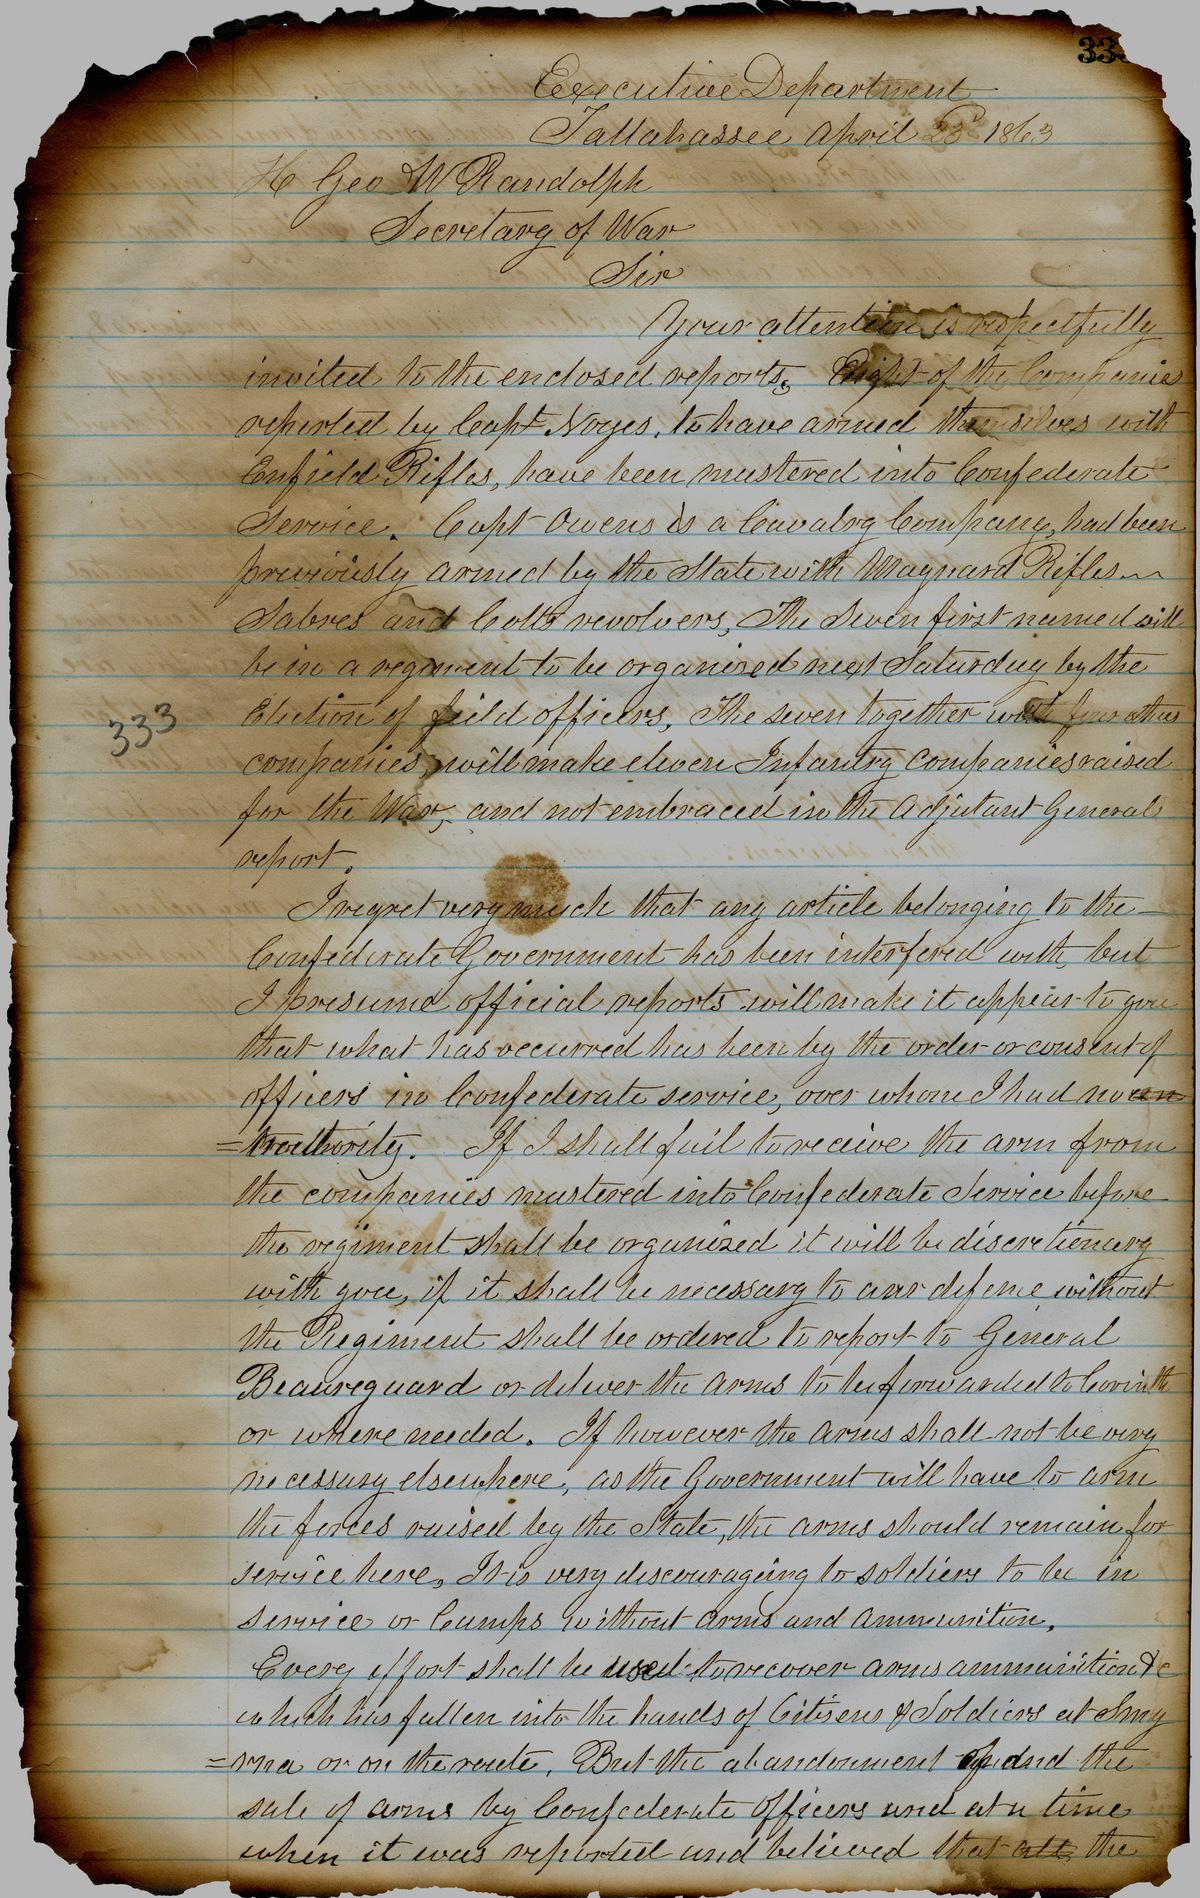 333
Executive Department
Tallahassee April 23d 1863
H Geo W Randolph
Secretary of War
Sir
Your attention is respectfully
invited to the enclosed reports, Eight of the Companies
reported by Capt Noyes, to have armed themselves with
Enfield Rifles, have been mustered into Confederate
Service. Capt Owens is a Cavalry Company, had been
previously armed by the State with Maynard Rifles
Sabres and Colts revolvers, The Seven first named will
be in a regiment to be organized next Saturday by the
Election of field officers, The seven together with four other
companies, will make eleven Infantry Companies raised
for the War, and not embraced in the Adjutant General
report.
I regret very much that any article belonging to the
Confederate Government has been interfered with, but
I presume official reports will make it appear to you
that what has occurred has been by the order or consent of
officers in Confederate service, over whom I had no
=authority. If I shall fail to receive the arm from
the companies mustered into Confederate Service before
the regiment shall be organized it will be discretionary
with you, if it shall be necessary to our defence without
the Regiment shall be ordered to report to General
Beaureguard or deliver the arms to be forwarded to Corinth
or where needed. If however the arms shall not be very
necessary elsewhere, as the Government will have to arm
the forces raised by the State, the arms should remain for
service here, It is very discouraging to soldiers to be in
service or Camps without arms and ammunition.
Every effort shall be used to recover arms ammunition &c
which has fallen into the hands of Citizens & Soldiers at Smy
=rna or on the route. But the abandonment of and the
sale of arms by Confederate Officers and at a time
when it was reported and believed that all the
333